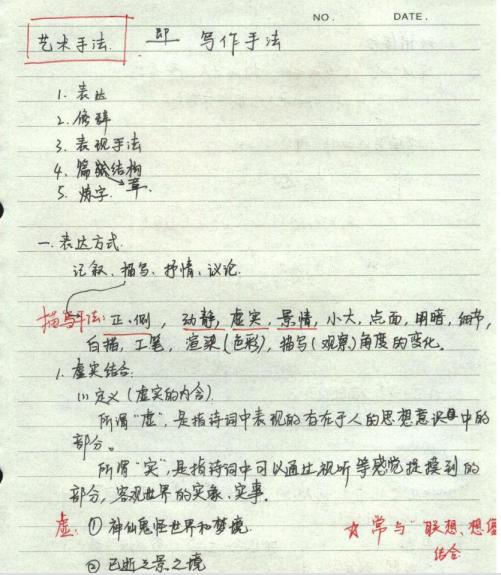 NO. DATE.
艺术手法. 即 写作手法
1. 表达
2. 修辞
3. 表现手法
4. 篇章结构
5. 炼字.
一. 表达方式.
记叙、描写、抒情、议论.
描写手法: 正、侧, 动静, 虚实, 景情, 小大, 点面, 明暗, 细节,
白描, 工笔, 渲染(色彩), 描写(观察)角度的变化.
1. 虚实结合:
(1) 定义(虚实的内含)
所谓“虚”, 是指诗词中表现的存在于人的思想意识中的
部分。
所谓“实”, 是指诗词中可以通过视听等感觉捉摸到的
部分, 客观世界的实象、实事.
虚: ① 神仙鬼怪世界和梦境. ☆ 常与“联想、想像
结合.
② 已逝之景之境